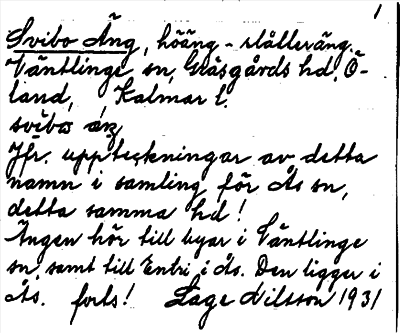 1
Svibo Äng, höäng - slåtteräng.
Väntlinge sn, Gräsgårds hd, Ö-
land, Kalmar l.
svibo äŋ
Jfr. uppteckningar av detta
namn i samling för Ås sn,
detta samma hd!
Ängen hör till byar i Väntlinge
sn, samt till Enbri, i Ås. Den ligger i
Ås. forts! Lage Nilsson 1931